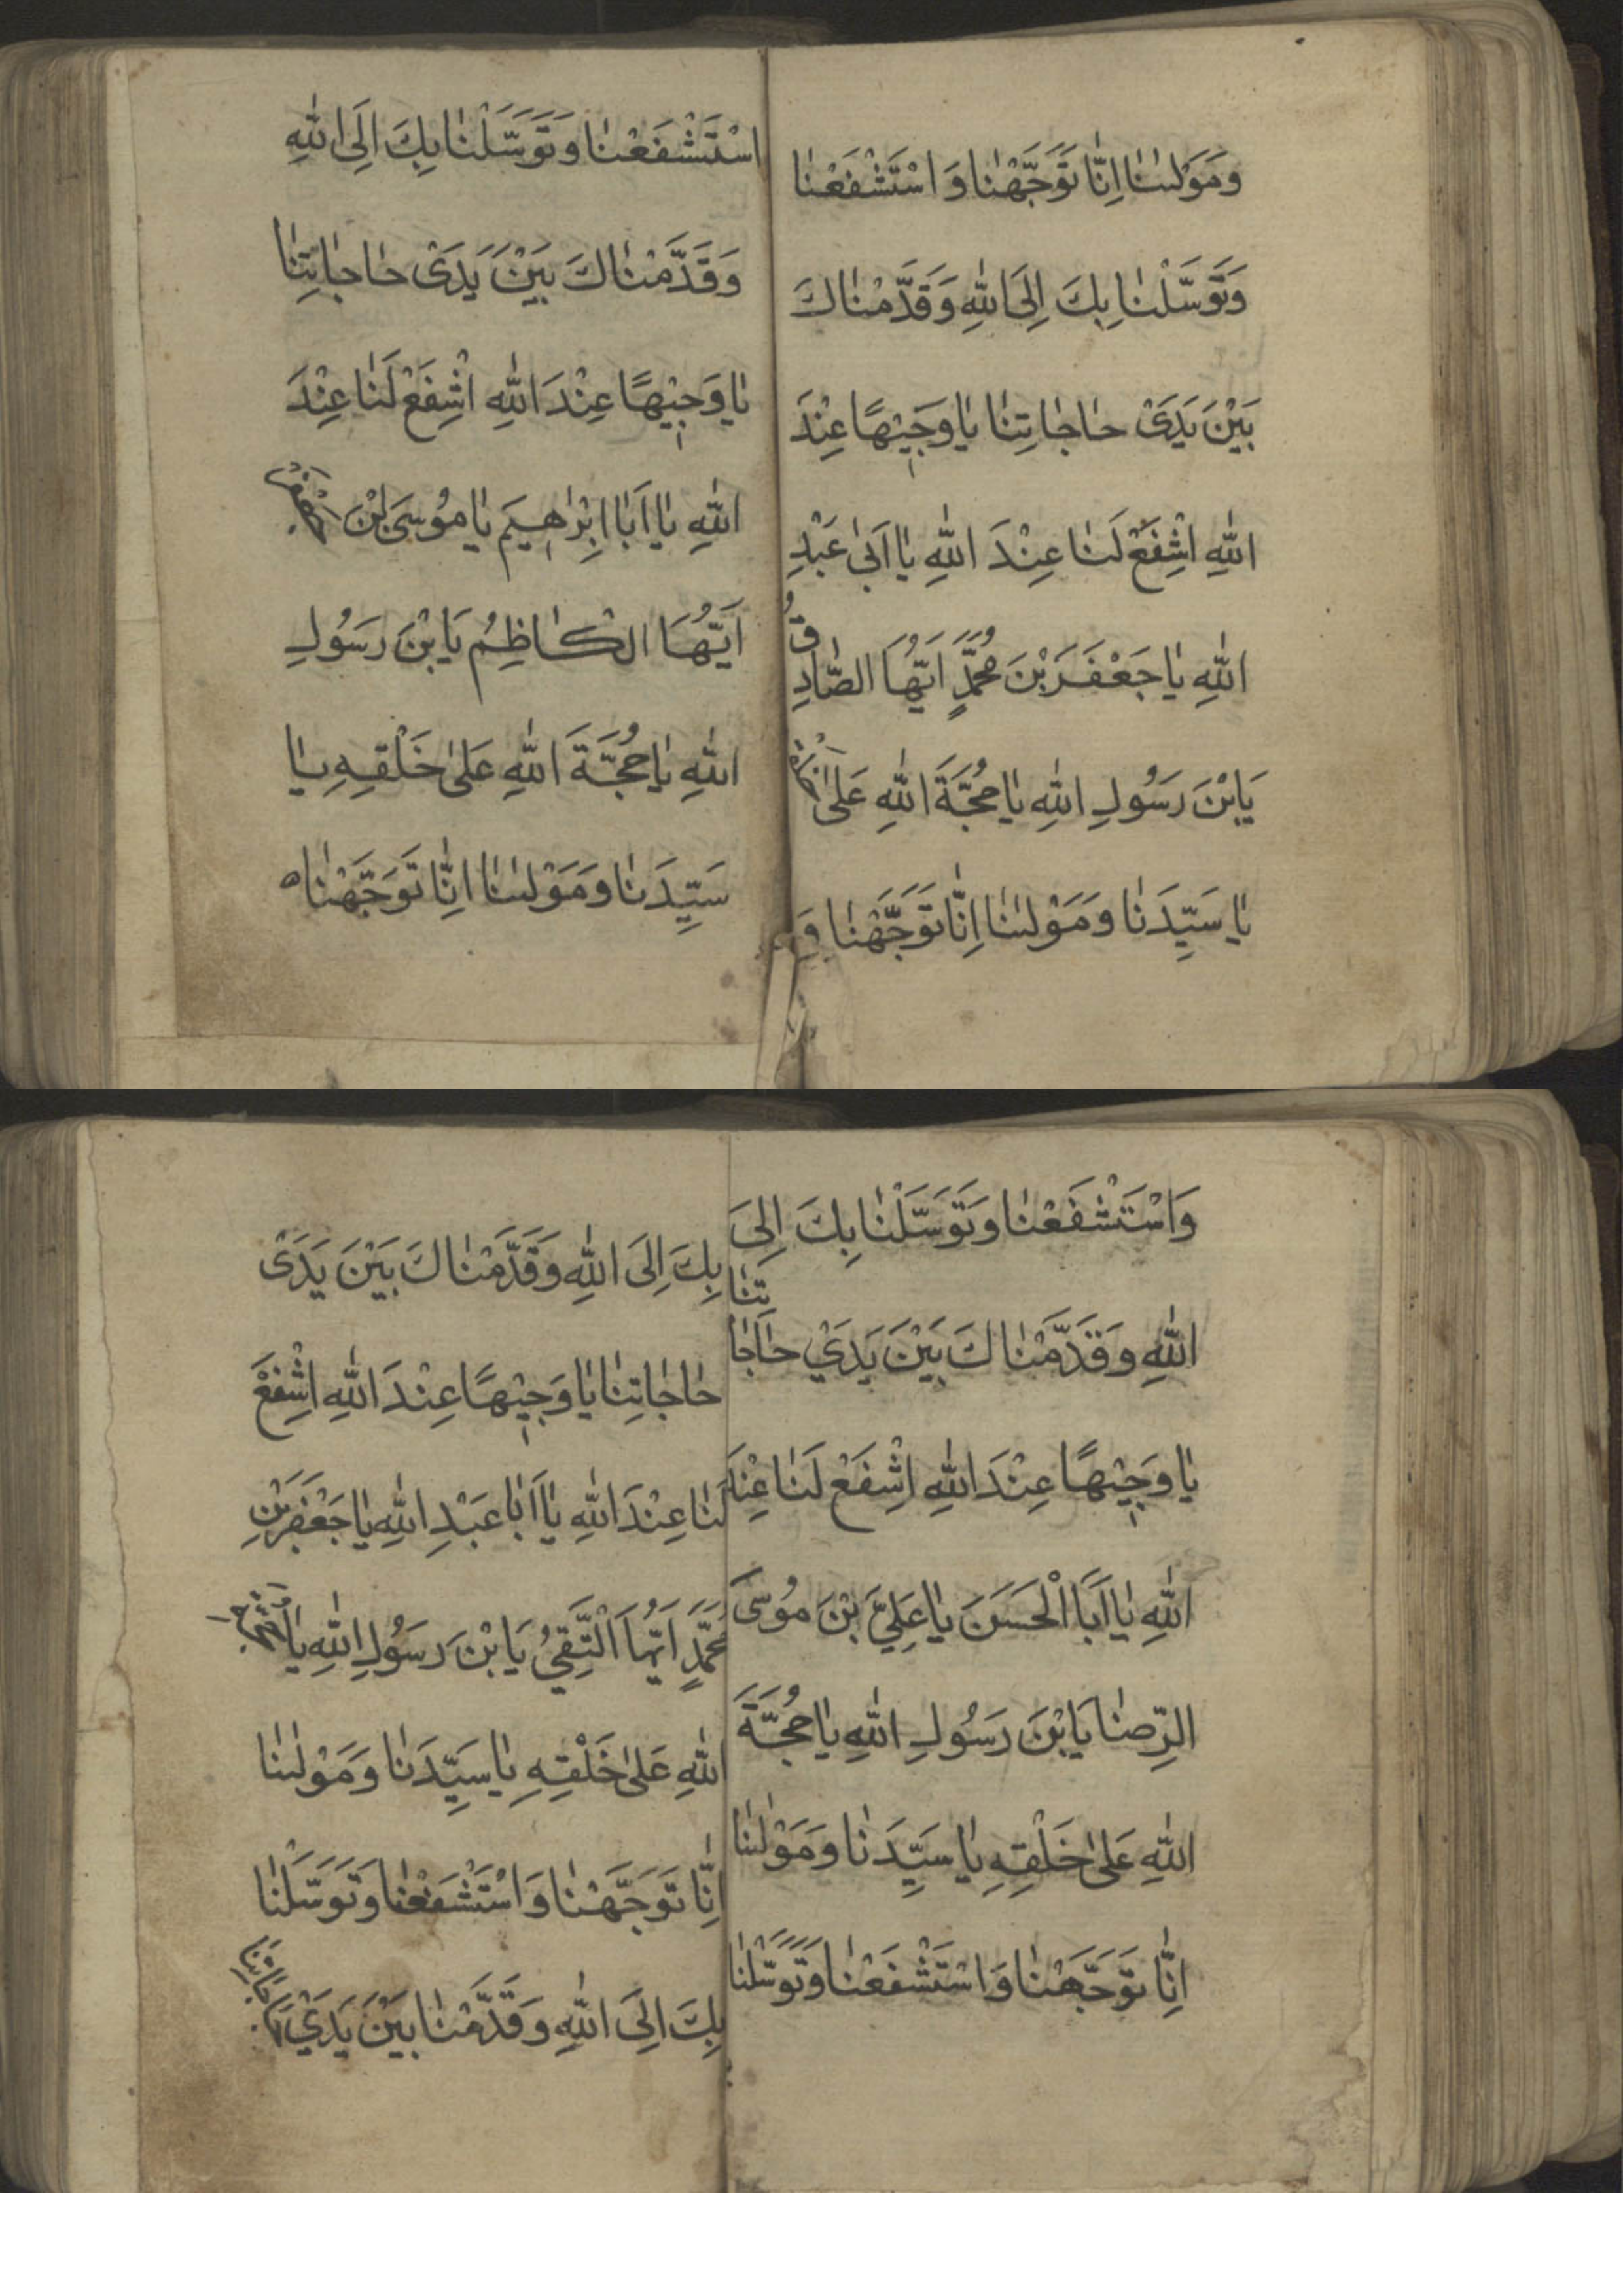 وَمَوْلٰىنٰا اِنّٰا تَوَجَّهْنٰا وَ اسْتَشْفَعْنٰا
وَتَوَسَّلْنٰا بِكَ اِلَى اللّٰهِ وَقَدَّمْنٰاكَ
بَيْنَ يَدَىْ حٰاجٰاتِنٰا يٰا وَجِيْهًا عِنْدَ
اللّٰهِ اشْفِعْ لَنٰا عِنْدَ اللّٰهِ يٰا اَبٰى عَبْدِ
اللّٰهِ يٰا جَعْفَرَ بْنَ مُحَمَّدٍ اَيُّهَا الصّٰادِقُ
يَابْنَ رَسُولِ اللّٰهِ يٰا حُجَّةَ اللّٰهِ عَلىٰ خَلْقِهِ
يٰا سَيِّدَنٰا وَمَوْلٰىنٰا اِنّٰا تَوَجَّهْنٰا وَ
اسْتَشْفَعْنٰا وَتَوَسَّلْنٰا بِكَ اِلَى اللّٰهِ
وَقَدَّمْنٰاكَ بَيْنَ يَدَىْ حٰاجٰاتِنٰا
يٰا وَجِيْهًا عِنْدَ اللّٰهِ اشْفِعْ لَنٰا عِنْدَ
اللّٰهِ يٰا اَبٰا اِبْرٰاهِيَم يٰا مُوسَى بْنَ جَعْفَرٍ
اَيُّهَا الْكٰاظِمُ يَا بْنَ رَسُولِ
اللّٰهِ يٰا حُجَّةَ اللّٰهِ عَلىٰ خَلْقِهِ يٰا
سَيِّدَنٰا وَمَوْلٰىنٰا اِنّٰا تَوَجَّهْنٰا
وَاسْتَشْفَعْنٰا وَتَوَسَّلْنٰا بِكَ اِلىَ
اللّٰهِ وَقَدَّمْنٰاكَ بَيْنَ يَدَيْ حٰاجٰاتِنٰا
يٰا وَجِيْهًا عِنْدَ اللّٰهِ اِشْفَعْ لَنٰا عِنْدَ
اللّٰهِ يٰا اَبَا الْحَسَنَ يٰا عَلِيَّ بْنَ مُوسَى
الرِّضٰا يَا بْنَ رَسُولِ اللّٰهِ يٰا حُجَّةَ
اللّٰهِ عَلىٰ خَلْقِهِ يٰا سَيِّدَنٰا وَمَوْلٰىنٰا
اِنّٰا تَوَجَّهْنٰا وَاسْتَشْفَعْنٰا وَتَوَسَّلْنٰا
بِكَ اِلَى اللّٰهِ وَقَدَّمْنٰاكَ بَيْنَ يَدَىْ
حٰاجٰاتِنٰا يٰا وَجِيْهًا عِنْدَ اللّٰهِ اشْفِعْ
لَنٰا عِنْدَ اللّٰهِ يٰا اَبٰا عَبْدِ اللّٰهِ يٰا جَعْفَرَ بْنِ
مُحَمَّدٍ اَيُّهَا الْتَّقِيُ يَا بْنَ رَسُولِ اللّٰهِ يٰا حُجَّةَ
اللّٰهِ عَلىٰ خَلْقِهِ يٰا سَيِّدَنٰا وَمَوْلٰىنٰا
اِنّٰا تَوَجَّهْنٰا وَاسْتَشْفَعْنٰا وَتَوَسَّلْنٰا
بِكَ اِلَى اللّٰهِ وَقَدَّمْنٰا بَيْنَ يَدَيْ حٰاجٰاتِنٰا